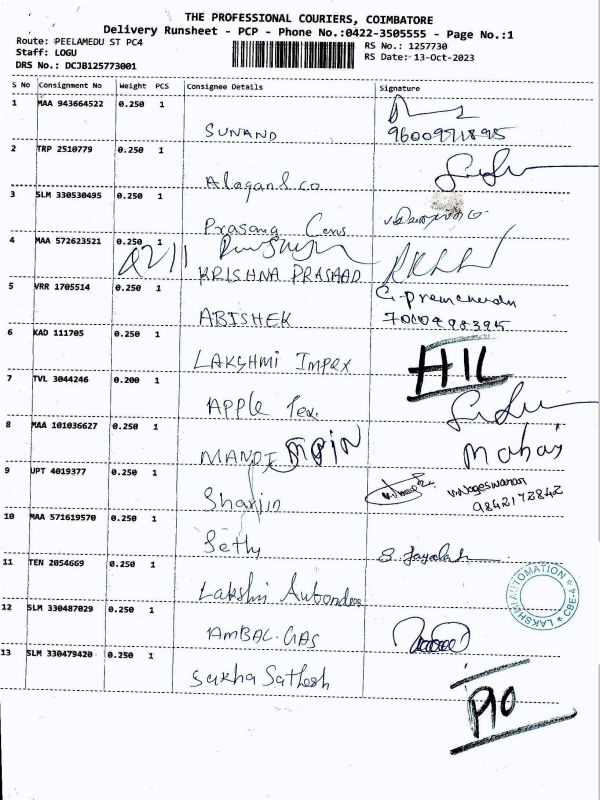 THE PROFESSIONAL COURIERS, COIMBATORE
Delivery Runsheet - PCP - Phone No.:0422-3505555 - Page No.:1
Route: PEELAMEDU ST PC4
RS No.: 1257730
Staff: LOGU
RS Date: 13-Oct-2023
DRS No.: DCJB125773001
S No Consignment No Weight PCS Consignee Details Signature
1 MAA 943664522 0.250 1
SUNAND 9600971895
2 TRP 2510779 0.250 1
Alagand co
3 SLM 330530495 0.250 1
Prasang Cons
4 MAA 572623521 0.250 1
KRISHNA PRASAAD
5 VRR 1705514 0.250 1
G. premchandn
ABISHEK
6 KAD 111705 0.250 1
LAKSHMI Impex
7 TVL 3044246 0.200 1
APPle Tex.
8 MAA 101036627 0.250 1
9 UPT 4019377 0.250 1
Sharjin
V.Nageswaran
9842172842
10 MAA 571619570 0.250 1
Setty
11 TEN 2054669 0.250 1
LAKSHMI AUTOMATION CBE-4
12 SLM 330487029 0.250 1
AMBAL GAS
13 SLM 330479420 0.250 1
Sukha Sathesh